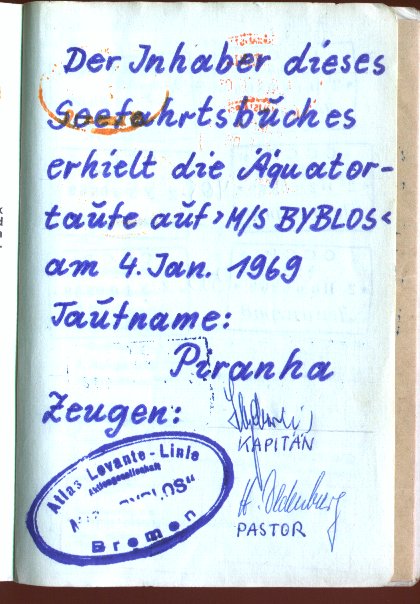 Der Inhaber dieses
Seefahrtsbuches
erhielt die Äquator-
taufe auf >M/S BYBLOS<
am 4. Jan. 1969
Taufname:
Piranha
Zeugen:
KAPITÄN
H. Oldenburg
PASTOR
Atlas Levante-Linie
Aktiengesellschaft
BYBLOS"
Bremen